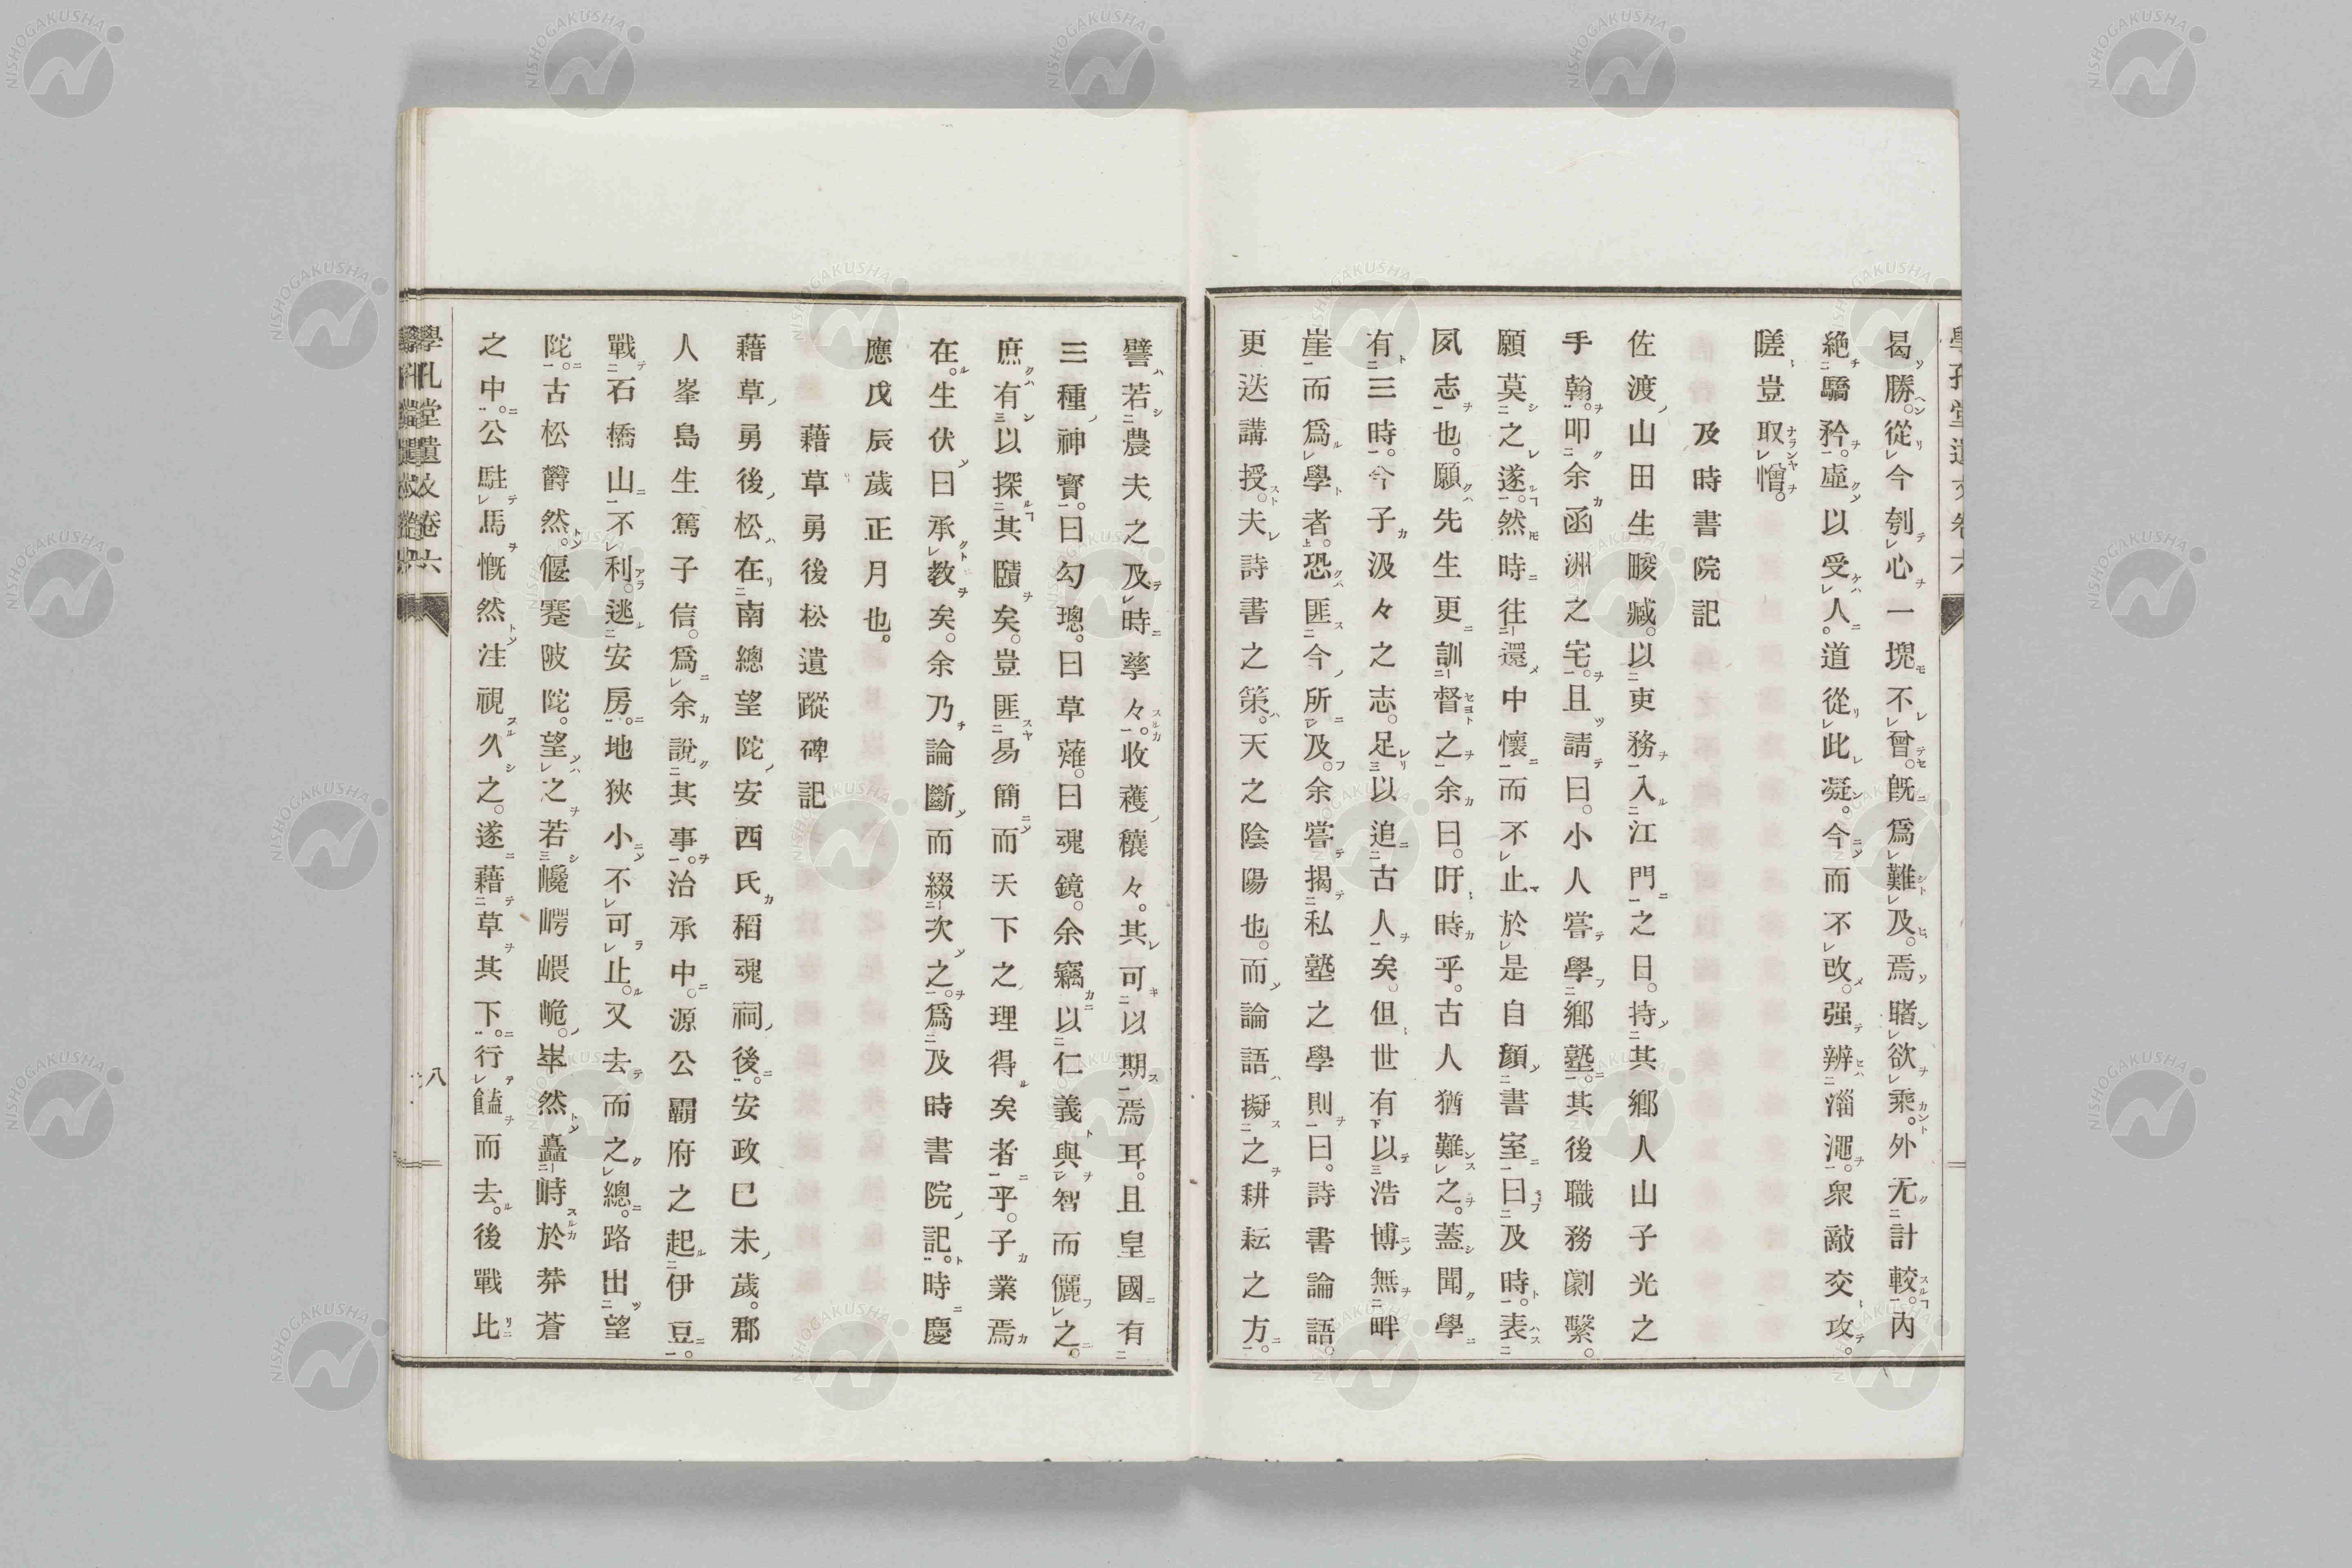 曷勝。從今刳心一塊不曾。旣爲難及。焉睹欲乘。外无計較。內
絶驕矜。虛以受人。道從此凝。今而不改。强辨淄澠。衆敵交攻。
嗟豈取憎。
及時書院記
佐渡山田生畯臧。以吏務入江門之日。持其鄕人山子光之
手翰。叩余函洲之宅。且請曰。小人嘗學鄕塾。其後職務劇繫。
願莫之遂。然時往還中懷而不止於是自顏書室曰及時。表
夙志也。願先生更訓督之余曰。吁時乎。古人猶難之。蓋聞學
有三時。今子汲々之志。足以追古人矣。但世有以浩博無畔
崖而爲學者。恐匪今所及。余嘗揭私塾之學則曰。詩書論語。
更迭講授。夫詩書之策。天之陰陽也。而論語擬之耕耘之方。
譬若農夫之及時孳々。收穫穰々。其可以期焉耳。且皇國有
三種神寶。曰勾璁。曰草薙。曰魂鏡。余竊以仁義與智而儷之。
庶有以探其賾矣。豈匪易簡而天下之理得矣者乎。子業焉
在。生伏曰承敎矣。余乃論斷而綴次之。爲及時書院記。時慶
應戊辰歲正月也。
藉草勇後松遺蹤碑記
藉草勇後松在南總望陀安西氏稻魂祠後。安政巳未歲。郡
人峯島生篤子信。爲余說其事。治承中。源公霸府之起伊豆。
戰石橋山不利。逃安房。地狹小不可止。又去而之總。路出望
陀。古松欝然。偃蹇陂陀。望之若巉崿嵔峗。崒然矗峙於莽蒼
之中。公駐馬慨然注視久之。遂藉草其下。行饁而去。後戰比
學孔堂遺文卷六
八
NISHOGAKUSHA